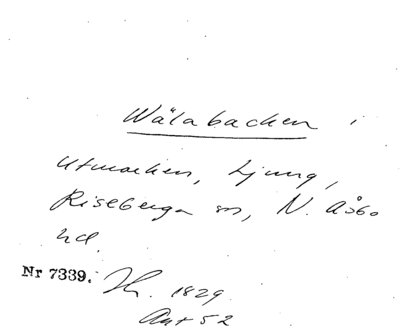 Wälabacken i
utmarken, Ljung,
Riseberga sn, N. Åsbo
hd.
Nr 7339. 1829
Akt 52